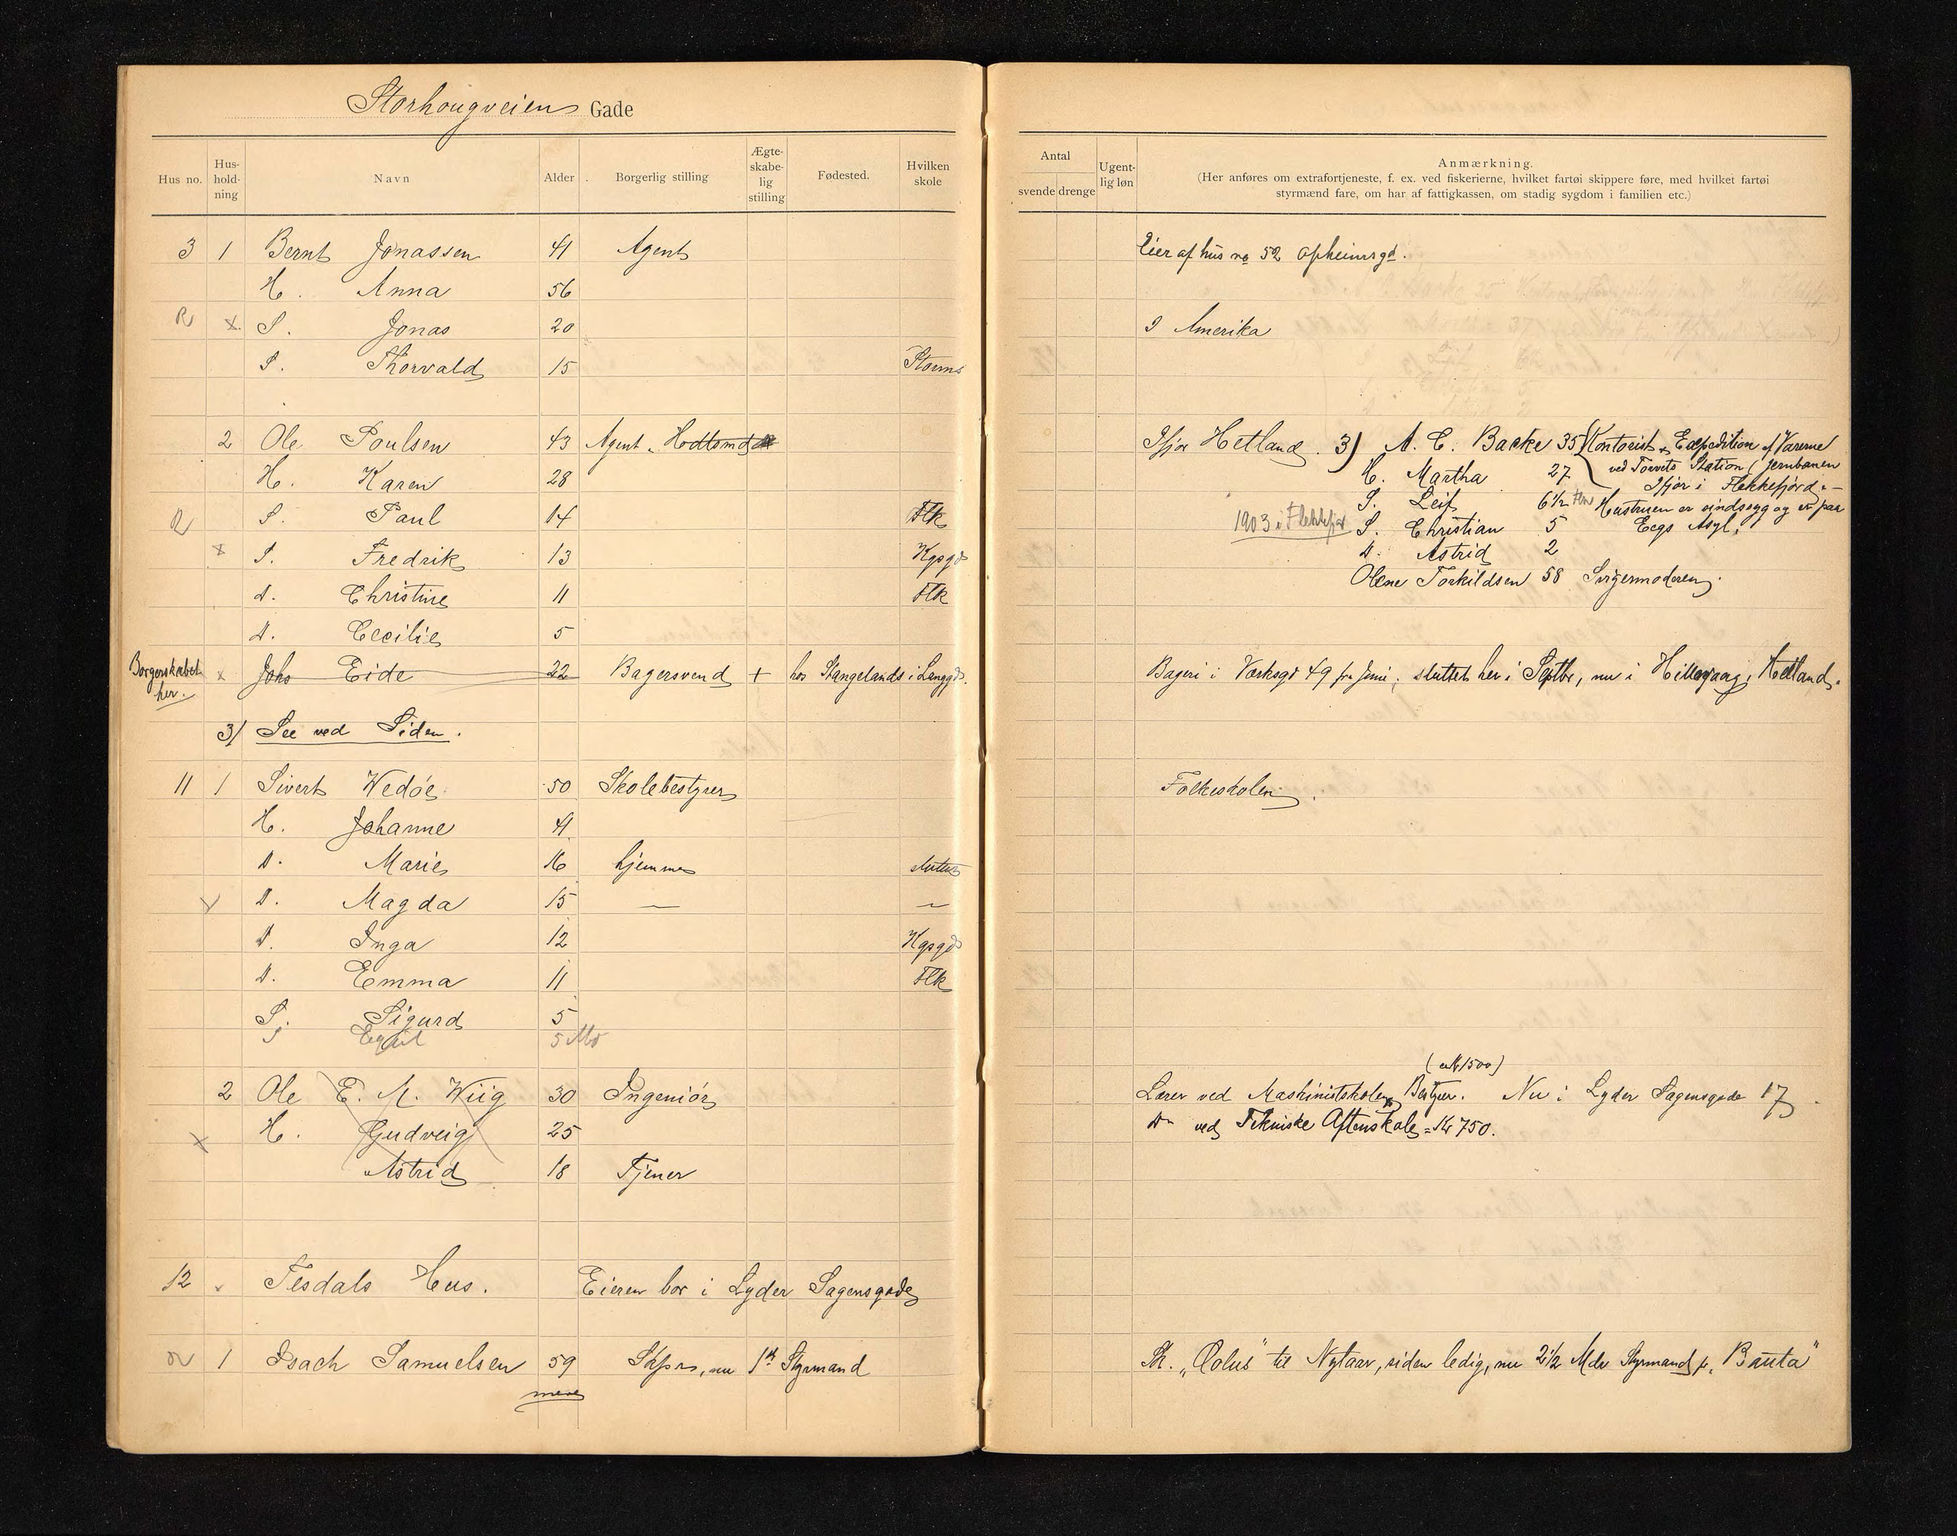 Storhougveien Gade
Hus no. Hus-hold-ning Navn Alder Borgerlig stilling Ægte-skabe-lig stilling Fødested. Hvilken skole
Antal svende drenge Ugent-lig løn Anmærkning.
(Her anføres om extrafortjeneste, f. ex. ved fiskerierne, hvilket fartøi skippere føre, med hvilket fartøi
styrmænd fare, om har af fattigkassen, om stadig sygdom i familien etc.)
3 1 Bernt Jonassen 41 Agent Eier af hus no 52 Opheimsgd.
H. Anna 56
R x S. Jonas 20 I Amerika
S. Thorvald 15 Storms
2 Ole Poulsen 43 Agent Ifjor Hetland.
H. Karen 28
R S. Paul 14 Flk
x S. Fredrik 13 Kgsgd
d. Christine 11 Flk
D. Cecilie 5
3) A. C. Backe 35 Kontorist & Expedition af Varerne
ved Torvets Station (Jernbanen
H. Martha 27 Ifjor i Flekkefjord
S. Leif 6 1/2 Hustruen er sindssyg og er paa
Eegs Asyl.
1903 i Flekkefj S. Christian 5
D. Astrid 2
Olene Torkildsen 58 Svigermoderen.
Borgerskabet her. x Johs Eide 22 Bagersvend + hos Stangelands i Langgd. Bageri i Værksgd 49 fra Juni, sluttet her i Septbr, nu i Hillevaag, Hetland.
3) See ved Siden.
11 1 Sivert Wedøe 50 Skolebestyrer Folkeskolen.
H. Johanne 41
D. Marie 16 hjemme sluttet
x D. Magda 15 — —
D. Inga 12 Kgsgd
D. Emma 11 Flk
S. Sigurd 5
S 5 Md
(ca Kr 1500)
2 Ole E. M. Wiig 30 Ingeniør Lærer ved Maskinistskolen, Bestyrer. Nu i Lyder Sagensgade 17.
x H. Gudveig 25 Do ved Tekniske Aftenskole = Kr 750.
Astrid 18 Tjener
12 Tesdals Hus. Eieren bor i Lyder Sagensgade
R 1 Isach Samuelsen 59 Skpr, nu 1st Styrmand Sk. "Æolus" til Nytaar, siden ledig, nu 2 1/2 Mdr Styrmand p. "Bauta"
mere